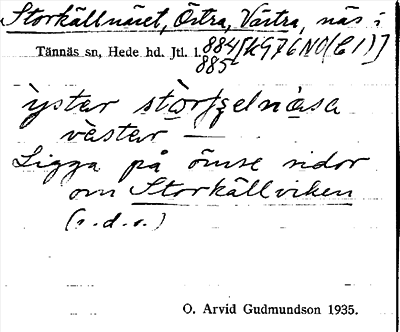 Storkällnäset, Östra, Västra, näs i
Tännäs sn, Hede hd. Jtl. l. 884 [KG76NO(C1)]
885
ýster storfzelnäsa
väster —
Ligga på ömse sidor
om Storkällviken
(s.d.o.)
O. Arvid Gudmundson 1935.